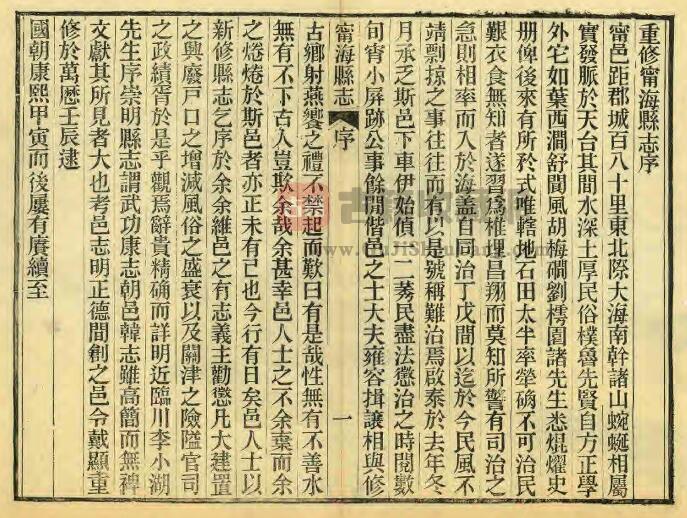 重修甯海縣志序
甯邑距郡城百八十里東北際大海南幹諸山蜿蜒相屬
實發脈於天台其間水深土厚民俗樸魯先賢自方正學
外它如葉西澗舒閬風胡梅磵劉樗園諸先生悉焜燿史
册俾後來有所矜式唯轄地石田太半率犖确不可治民
艱衣食無知者遂習爲椎埋昌翔而莫知所警有司治之
急則相率而入於海盖自同治丁戊間以迄於今民風不
靖剽掠之事往往而有以是號稱難治焉啟泰於去年冬
月承乏斯邑下車伊始偵一二莠民盡法懲治之時閱數
旬宵小屏跡公事餘閒偕邑之士大夫雍容揖讓相與修
甯海縣志 序 一
古鄉射燕饗之禮不禁起而歎曰有是哉性無有不善水
無有不下古人豈欺余哉余甚幸邑人士之不余棄而余
之惓惓於斯邑者亦正未有已也今行有日矣邑人士以
新修縣志乞序於余余維邑之有志義主勸懲凡大建置
之興廢戶口之增減風俗之盛衰以及關津之險隘官司
之政績胥於是乎觀焉辭貴精确而詳明近臨川李小湖
先生序崇明縣志謂武功康志朝邑韓志雖高簡而無裨
文獻其所見者大也考邑志明正德間創之邑令戴顯重
修於萬歷壬辰逮
國朝康熙甲寅而後屢有賡續至